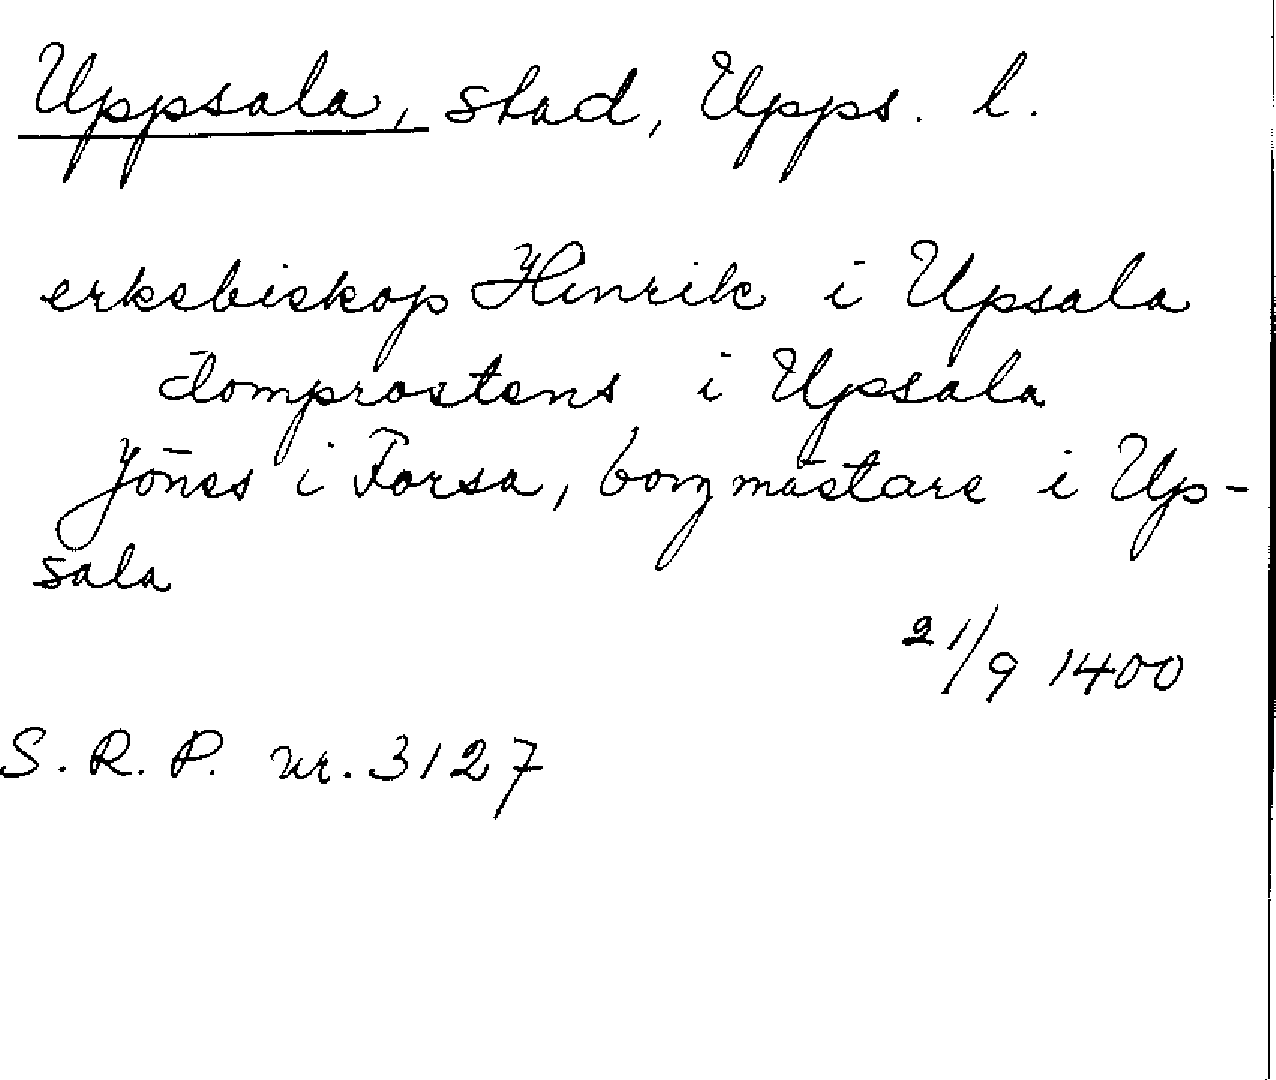 Uppsala, stad, Upps. l.
erkebiskop Henrik i Upsala
domprostens i Upsala
Jönes i Forsa, borgmästare i Up-
sala
21/9 1400
S. R. P. nr. 3127